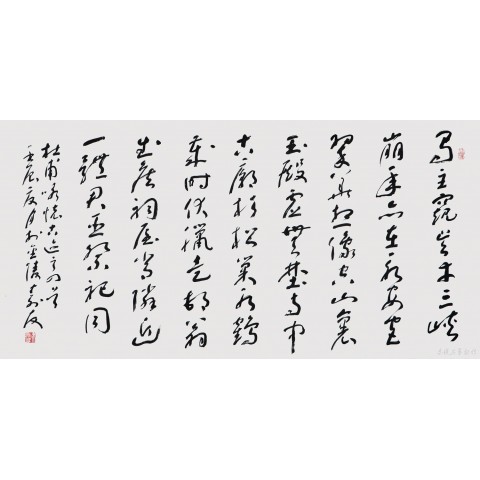 蜀主窺吳幸三峽
崩年亦在永安宮
翠華想像空山裏
玉殿虛無野寺中
古廟杉松巢水鶴
歲時伏臘走村翁
武侯祠屋常鄰近
一體君臣祭祀同
杜甫詠懷古迹之四首
壬辰夏月於金陵